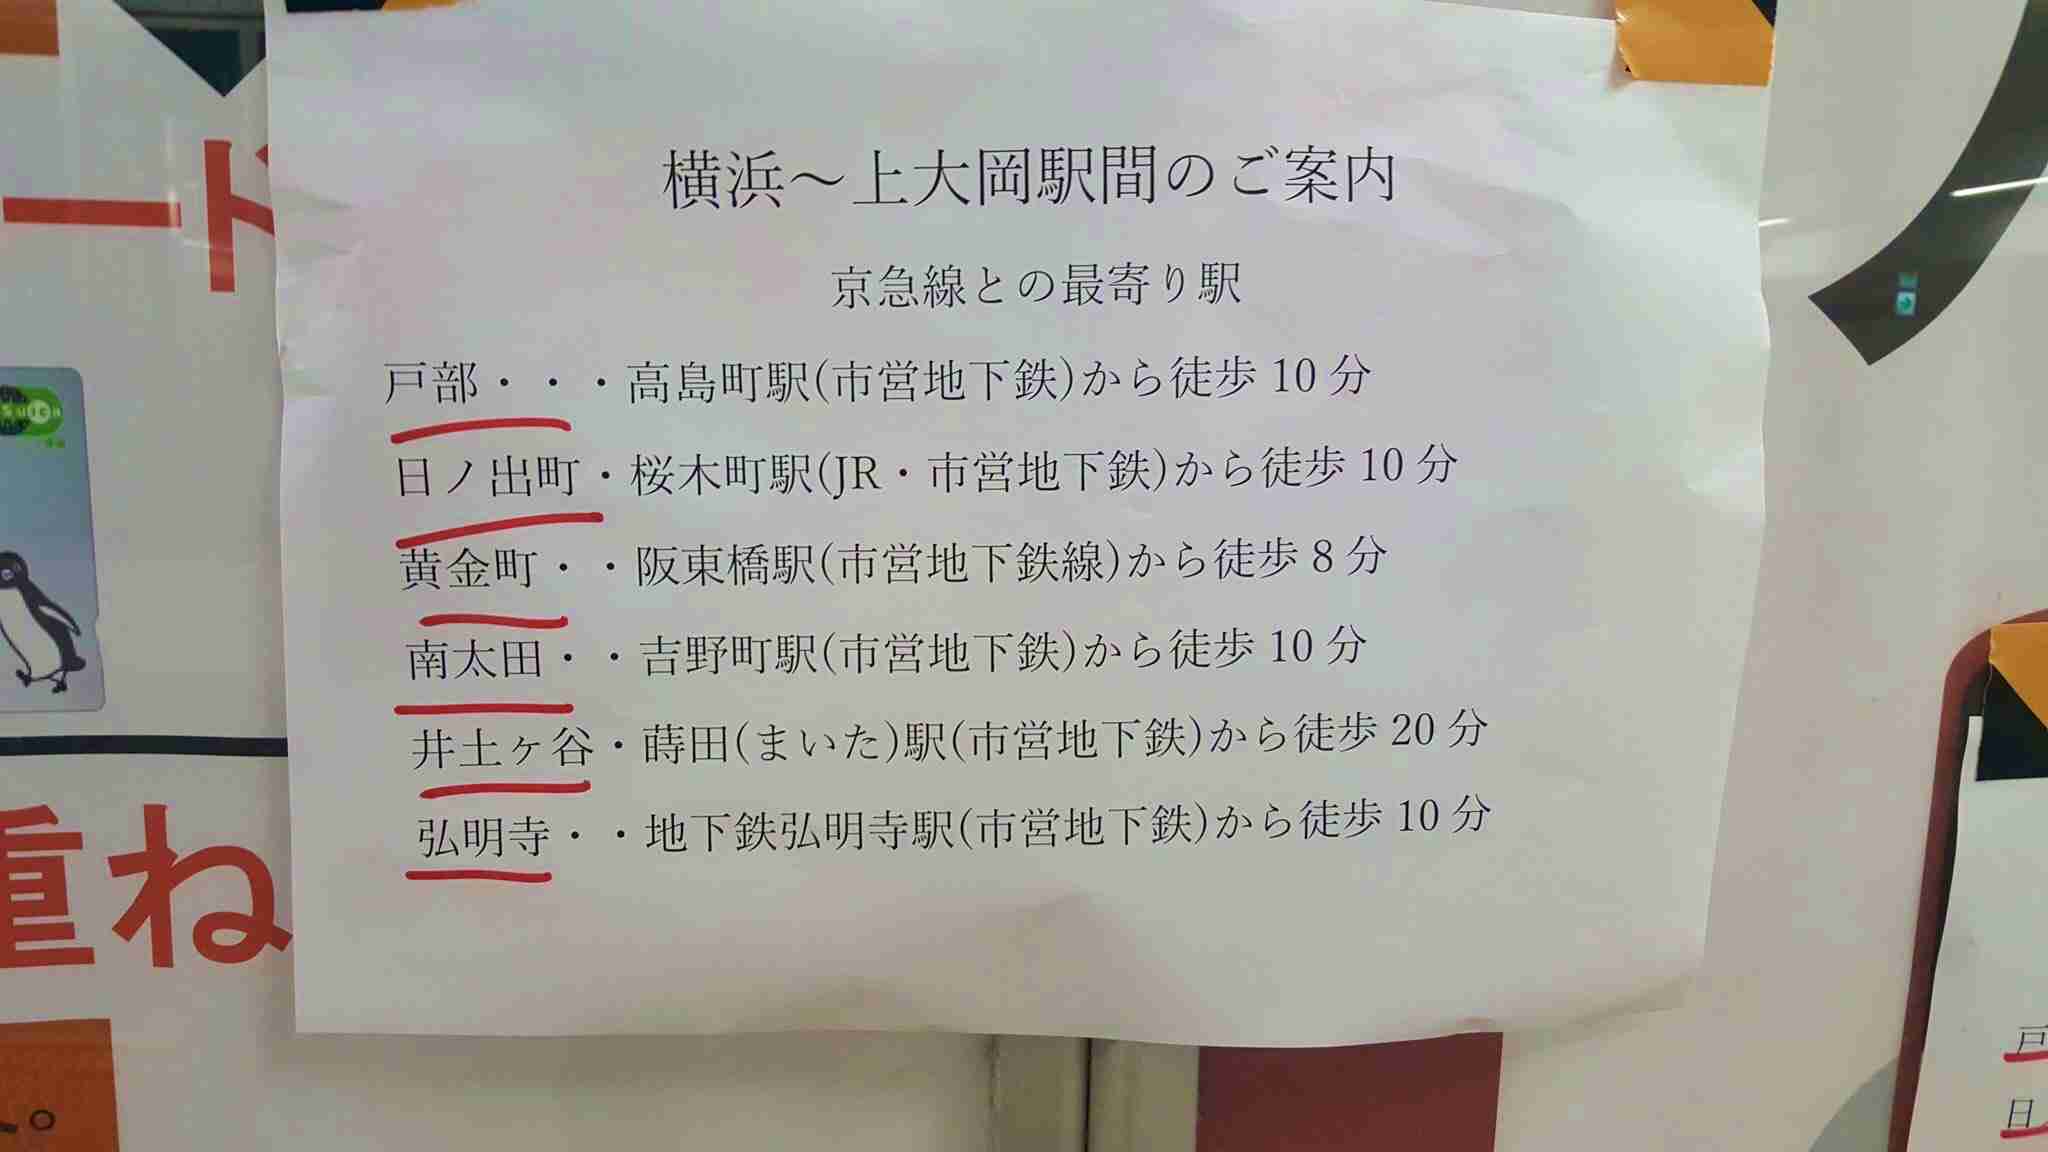 横浜～上大岡駅間のご案内
京急線との最寄り駅
戸部・・・高島町駅(市営地下鉄)から徒歩10分
日ノ出町・桜木町駅(JR・市営地下鉄)から徒歩10分
黄金町・・阪東橋駅(市営地下鉄線)から徒歩8分
南太田・・吉野町駅(市営地下鉄)から徒歩10分
井土ヶ谷・蒔田(まいた)駅(市営地下鉄)から徒歩20分
弘明寺・・地下鉄弘明寺駅(市営地下鉄)から徒歩10分
ード
Suica
重ね
戸
日